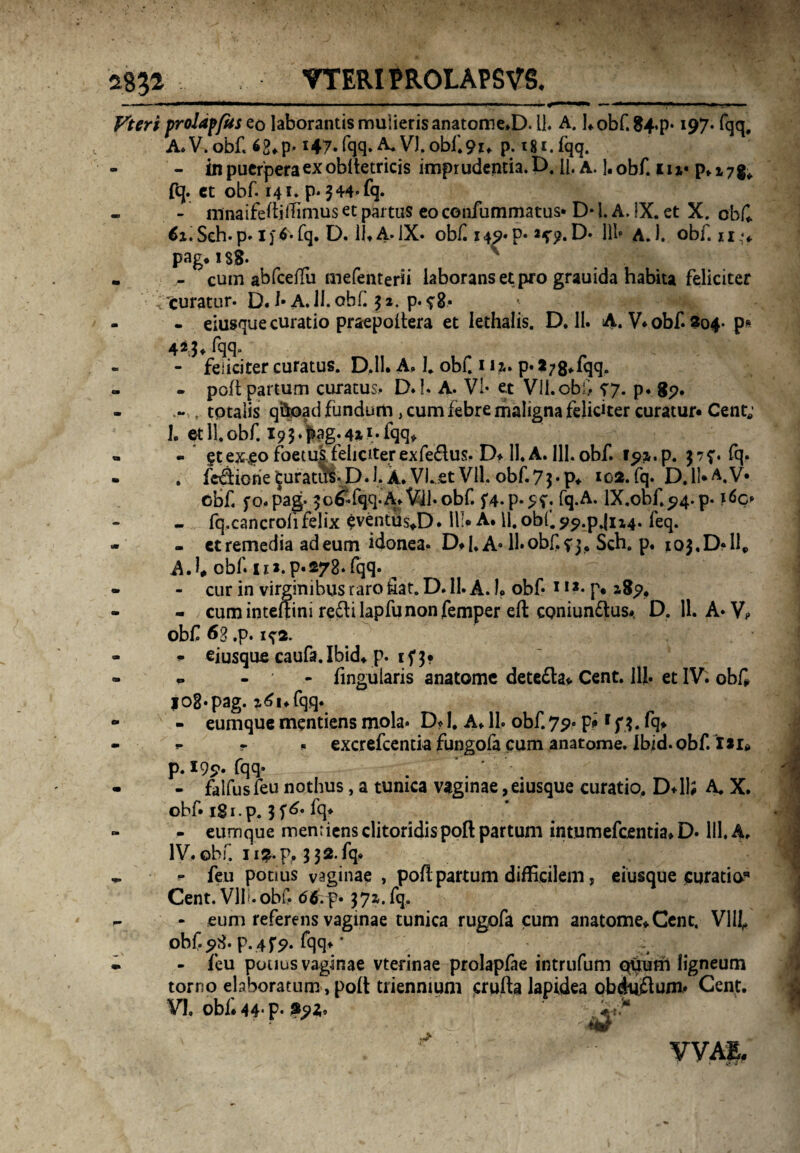 2832 VTERI PROLAPSVS.
Vteri prolapsus eo laborantis mulieris anatome. D. II. A. I. obſ. 84. p. 197. ſqq.
A. V. obſ. 68. p. 147. ſqq. A. VI. obſ. 91. p. 181. ſqq.
- in puerpera ex obſtetricis imprudentia. D. II. A. I. obſ. 112. p. 278.
ſq. et obſ. 141. p. 344. ſq.
- mnaifeſtiſſimus et partus eo conſummatus. D. I. A. IX. et X. obſ.
61. Sch. p. 156. ſq. D. II. A. IX. obſ. 149. p. 259. D. III. A. I. obſ. 11.
pag. 158.
- cum abſceſſu meſenterii laborans et pro grauida habita feliciter
curatur. D. I. A. II. obſ. 32. p. 58.
- eiusque curatio praepoſtera et lethalis. D. II. A. V. obſ. 204. p.
423. ſqq.
- feliciter curatus. D. II. A. I. obſ. 112. p. 278. ſqq.
- poſt partum curatus. D. I. A. VI. et VII. obſ. 57. p. 89.
- totalis quoad fundum, cum febre maligna feliciter curatur. Cent.
I. et II. obſ. 193. pag. 421. ſqq.
- et ex eo foetus feliciter exſectus. D. II. A. III. obſ. 192. p. 375. ſq.
- ſectione curatus. D. I. A. VI. et VII. obſ. 73. p. 102. ſq. D. II. A. V.
obſ. 50. pag. 306. ſqq. A. VII. obſ. 54. p. 95. ſq. A. IX. obſ. 94. p. 160.
- ſq. cancroſi felix eventus. D. III. A. II. obſ. 99. p. 124. ſeq.
- et remedia ad eum idonea. D. I. A. II. obſ. 53. Sch. p. 103. D. II.
A. I. obſ. 112. p. 278. ſqq.
- cur in virginibus raro fiat. D. II. A. I. obſ. 112. p. 289.
- cum inteſtini recti lapſu non ſemper eſt coniunctus. D. II. A. V.
obſ. 68. p. 152.
- eiusque cauſa. Ibid. p. 153.
- - - ſingularis anatome detecta. Cent. III. et IV. obſ.
108. pag. 261. ſqq.
- eumque mentiens mola. D. I. A. II. obſ. 79. p. 153. ſq.
- - - excreſcentia fungoſa cum anatome. Ibid. obſ. 121.
p. 195. ſqq.
- falſus ſeu nothus, a tunica vaginae, eiusque curatio. D. II. A. X.
obſ. 181. p. 356. ſq.
- eumque mentiens clitoridis poſt partum intumeſcentia. D. III. A.
IV. obſ. 112. p. 332. ſq.
- ſeu potius vaginae, poſt partum difficilem, eiusque curatio.
Cent. VIII. obſ. 66. p. 372. ſq.
- eum referens vaginae tunica rugoſa cum anatome. Cent. VIII.
obſ. 98. p. 459. ſqq.
- ſeu potius vaginae vterinae prolapſae intruſum ouum ligneum
torno elaboratum, poſt triennium cruſta lapidea obductum. Cent.
VI. obſ. 44. p. 292.
VVAE.